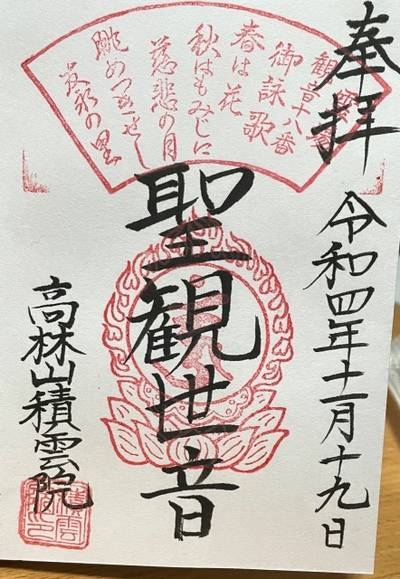 奉拝
令和四年十一月十九日
十八番
御詠歌
春は花
秋はもみじに
慈悲の月
眺めつきせじ
友永の里
聖観世音
高林山積雲院
積雲